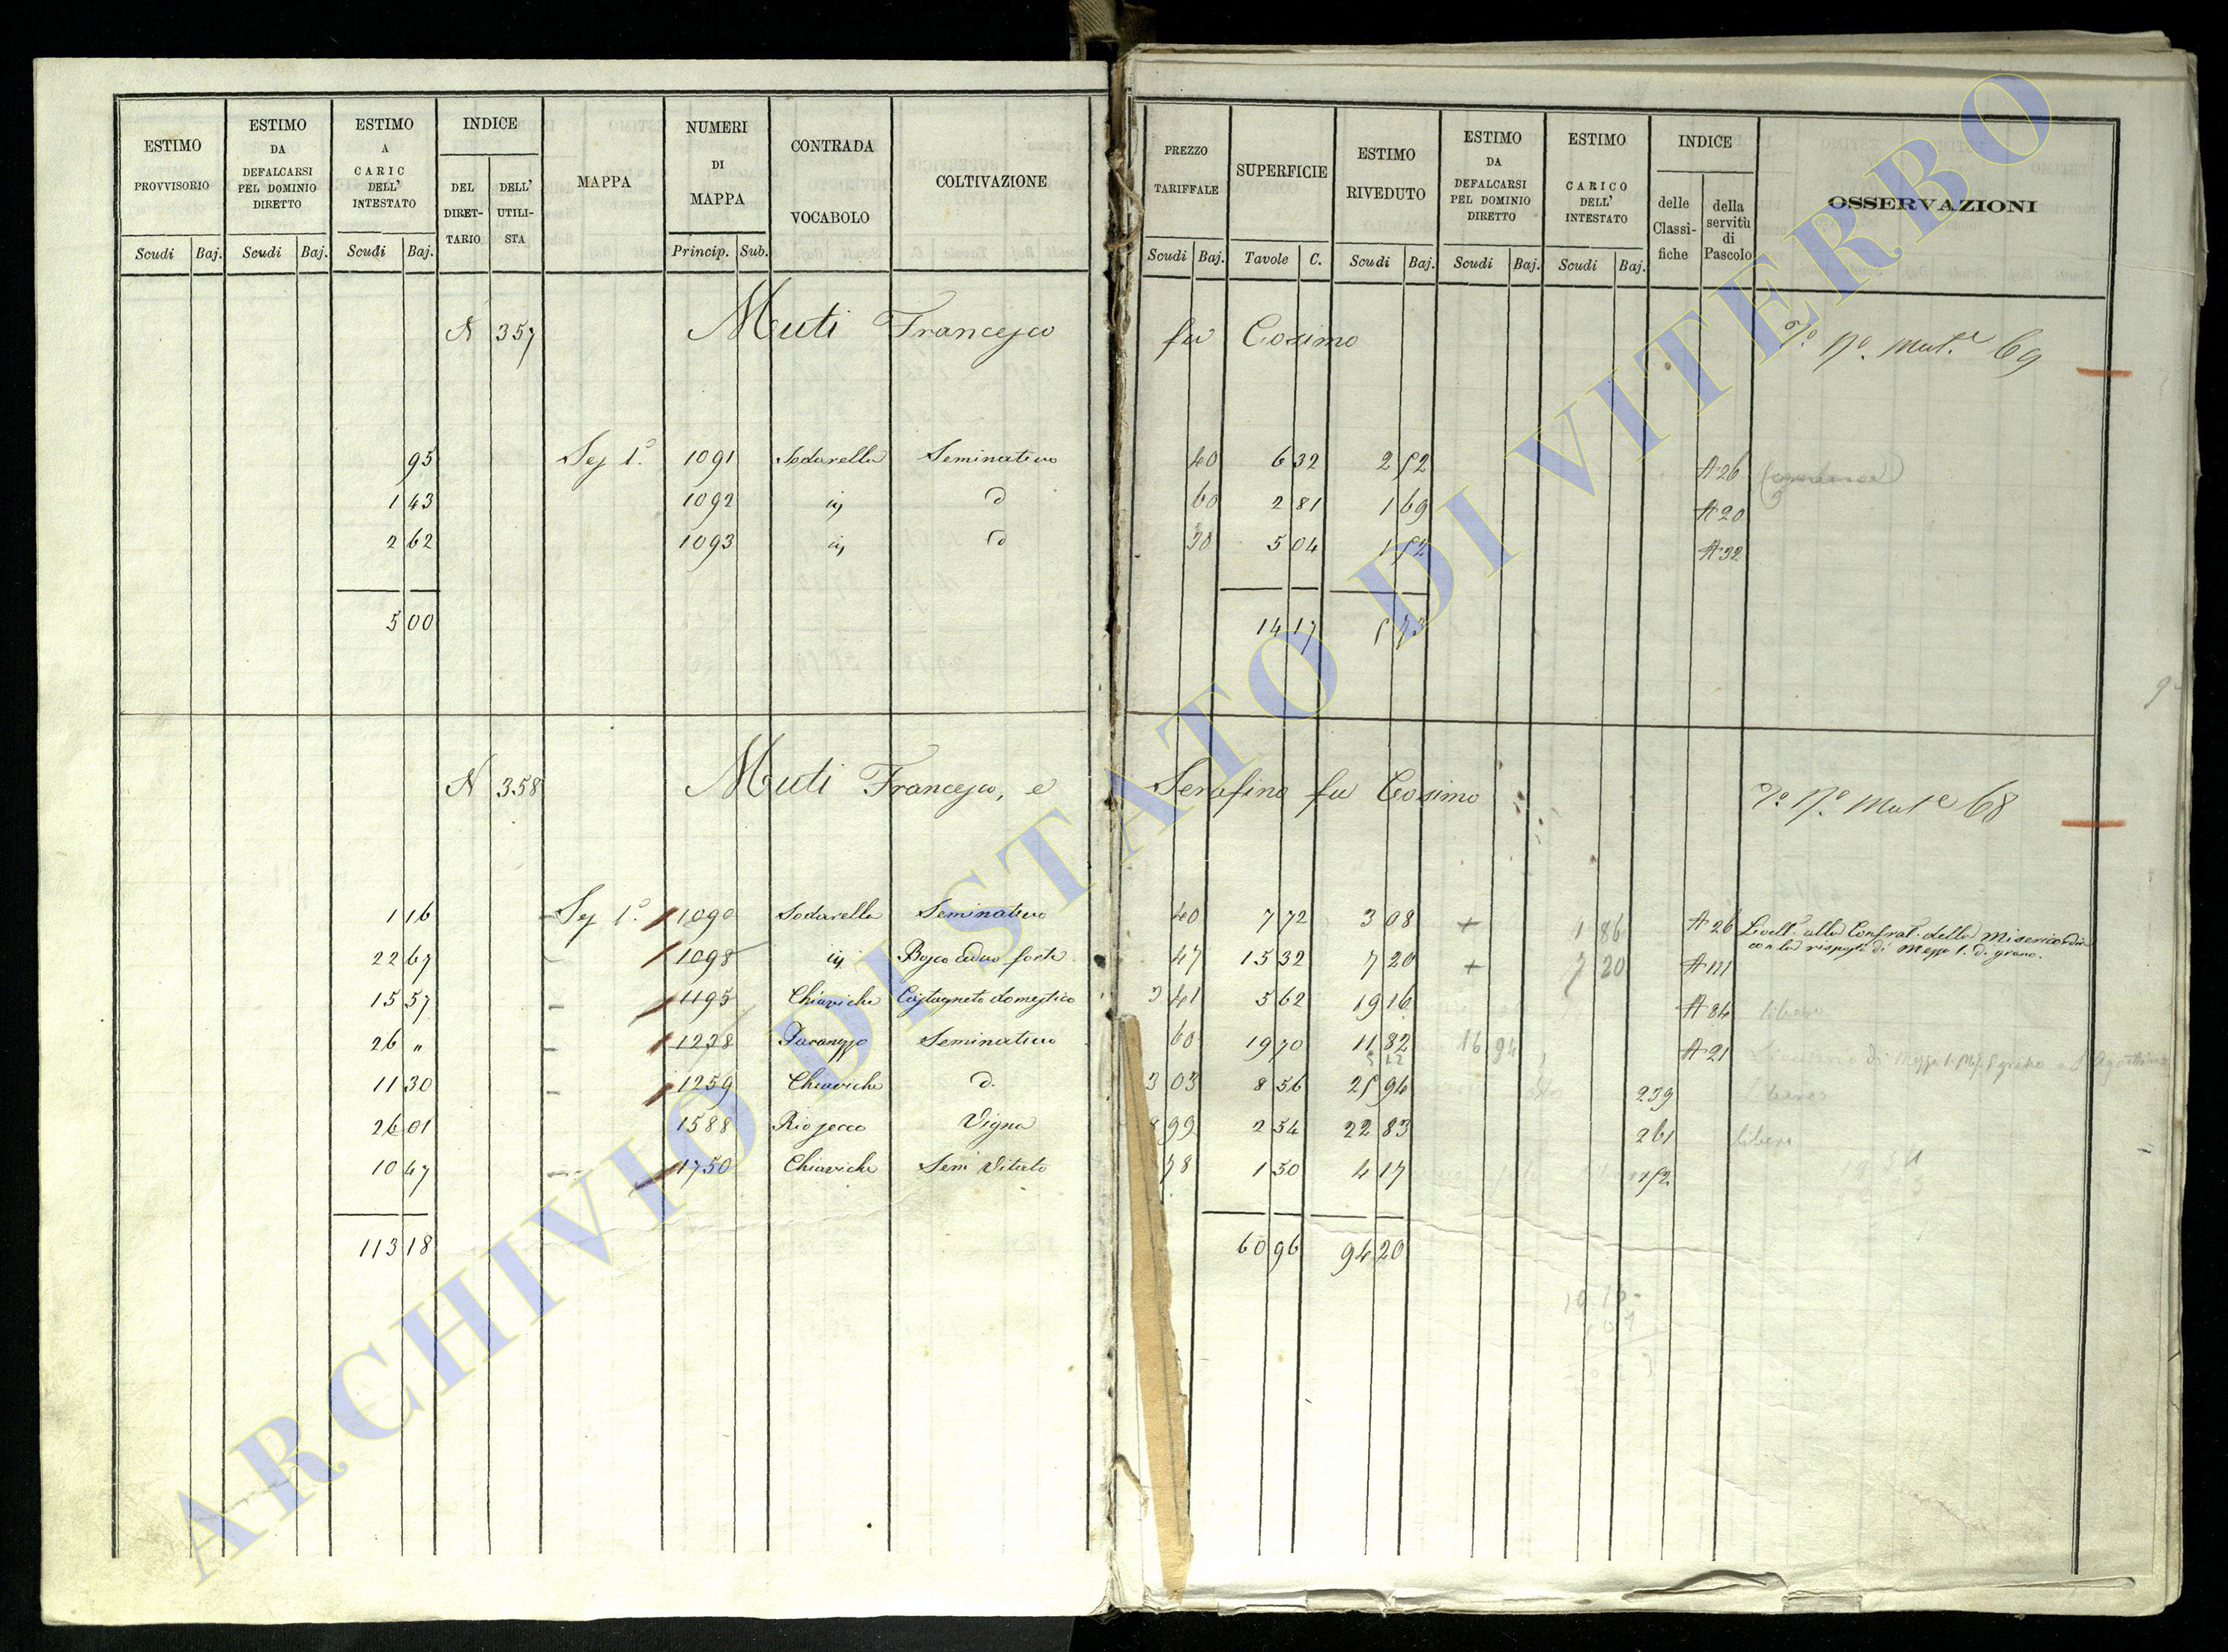 ESTIMO PROVVISORIO
ESTIMO DA DEFALCARSI PEL DOMINIO DIRETTO
ESTIMO A CARIC DELL' INTESTATO
INDICE
DEL DIRET-TARIO
DELL' UTILI-STA
MAPPA
NUMERI DI MAPPA
CONTRADA VOCABOLO
COLTIVAZIONE
PREZZO TARIFFALE
SUPERFICIE
ESTIMO RIVEDUTO
ESTIMO DA DEFALCARSI PEL DOMINIO DIRETTO
ESTIMO CARICO DELL' INTESTATO
INDICE
delle Classi-fiche
della servitù di Pascolo
OSSERVAZIONI
Scudi Baj. Scudi Baj. Scudi Baj. Princip. Sub. Scudi Baj. Tavole C. Scudi Baj. Scudi Baj. Scudi Baj.
N 357 Muti Francesco fu Cosimo Nº mut.e 69
95 Sez 1ª 1091 Sodarella Seminativo 40 6 32 2 52 A 26
1 43 1092 iij d 60 2 81 1 69 A 20
2 62 1093 iij d 30 5 04 1 52 A 32
5 00 14 17 5 73
N 358 Muti Francesco, e Serafino fu Cosimo Nº Mut.e 68
1 16 Sez 1ª 1090 Sodarella Seminativo 40 7 72 3 08 + 1 86 A 26 Livell.º alla Confrat. della Misericordia
con la risposta di Mezzo S. di grano.
22 67 1098 iij Bosco ceduo forte 47 15 32 7 20 + 7 20 A 111
15 57 1195 Chiaviche Castagneto domestico 3 41 5 62 19 16 A 84 libero
26 " 1238 Seminativo 60 19 70 11 82 16 94 A 21
11 30 1259 Chiaviche d. 3 03 8 56 25 94 239 libero
26 01 1588 Rio secco Vigna 8 99 2 54 22 83 261 libero
10 47 1750 Chiaviche Sem Vitato 78 1 50 4 17 152
113 18 60 96 94 20
ARCHIVIO DI STATO DI VITERBO